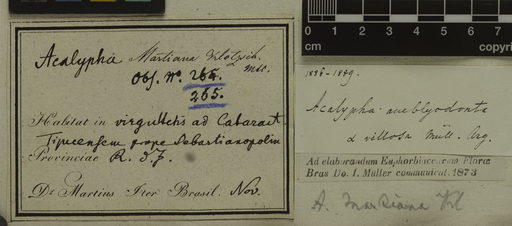 Acalypha Martiana Klotzsch.
mss.
Obs. No. 264.
265.
Habitat in virgultis ad Cataract.
Tijucensem prope Sebastianopolin
Provinciae R. d J.
Dr. Martius Iter Brasil. Nov.
0 1 2 3
cm copyri
Acalypha amblyodonta
α villosa Müll. Arg.
Ad elaborandum Euphorbiacearum Florae
Bras Do. I. Müller communicat. 1873
A. Martiana Kl